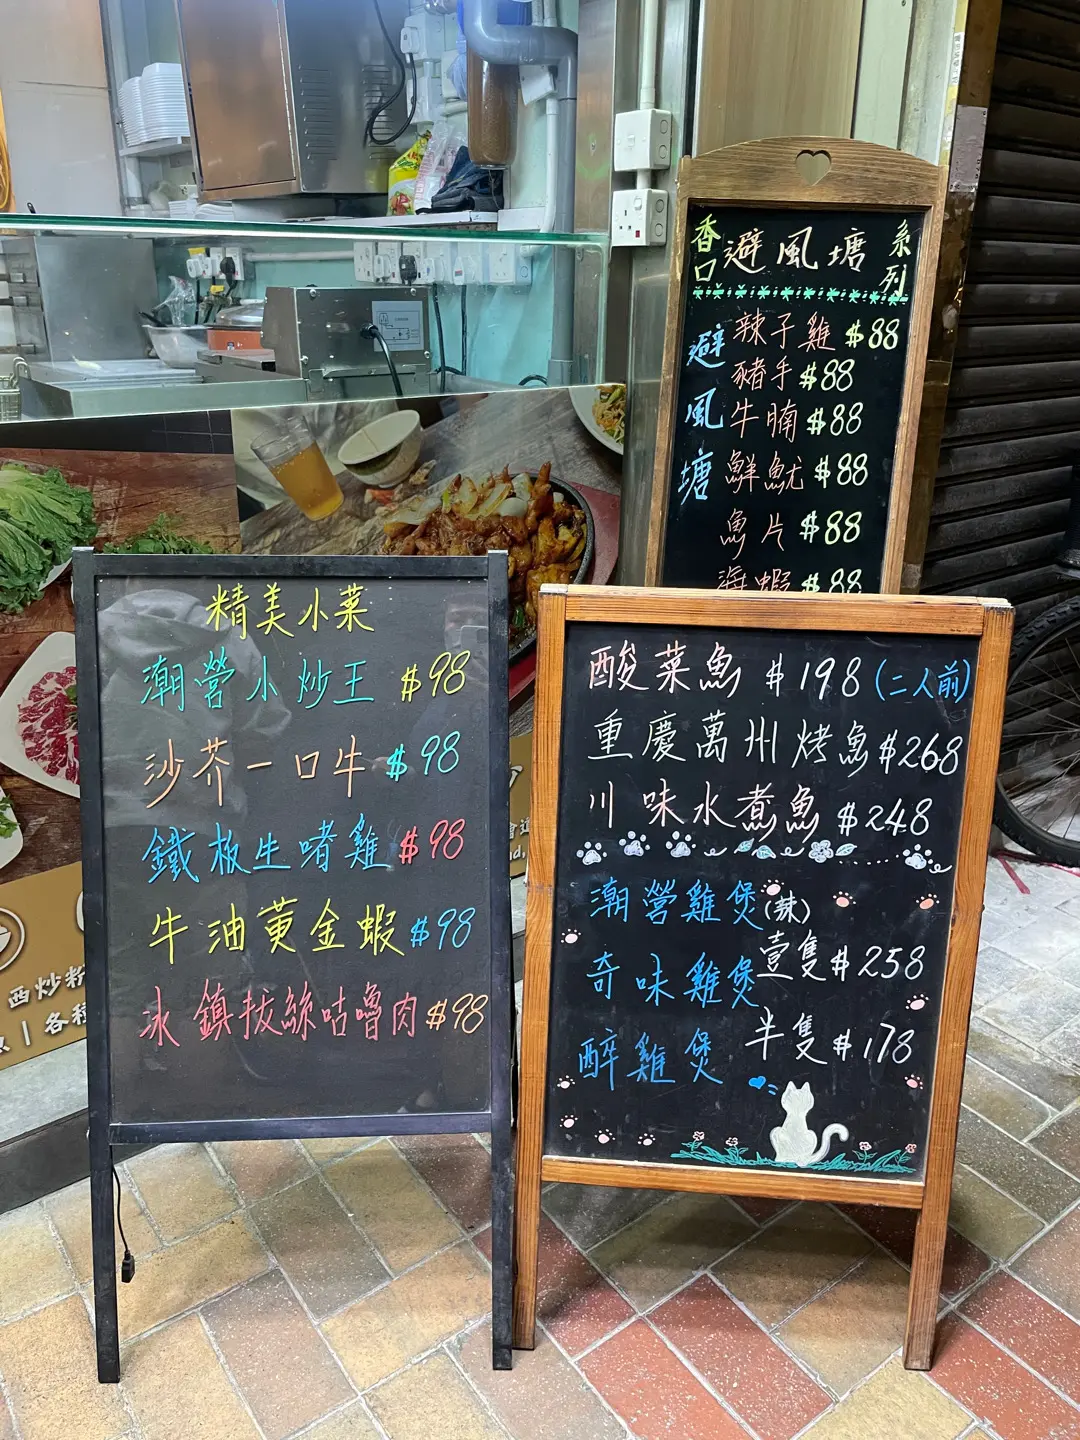 精美小菜
潮營小炒王 $98
沙芥一口牛 $98
鐵板生啫雞 $98
牛油黄金蝦 $98
冰鎮拔絲咕嚕肉 $98
香口避風塘系列
避風塘
辣子雞 $88
豬手 $88
牛腩 $88
鮮魷 $88
魚片 $88
海蝦 $88
酸菜魚 $198 (二人前)
重慶萬州烤魚 $268
川味水煮魚 $248
潮營雞煲(辣)
奇味雞煲
醉雞煲
壹隻 $258
半隻 $178
西炒粉
各種